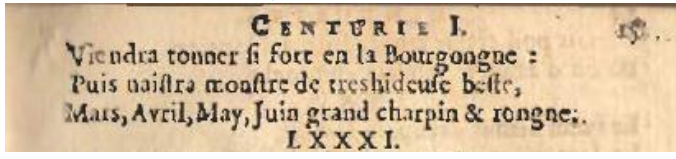 CENTURIE I. 15.
Viendra tonner ſi fort en la Bourgongne :
Puis naiſtra monſtre de treshideuſe beſte,
Mars, Avril, May, Juin grand charpin & rongne;.
LXXXI.